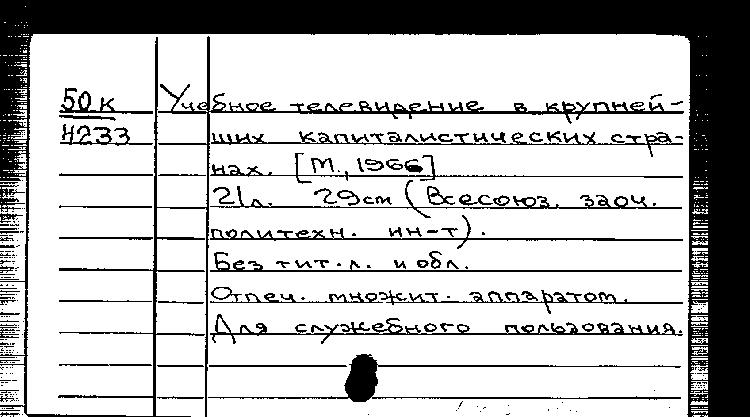 50к
4233
Учебное телевидение в крупней-
ших капиталистических стра-
нах. [М., 1966]
21л. 29см (Всесоюз. заоч.
политехн. ин-т).
Без тит. л. и обл.
Отпеч. множит. аппаратом.
Для служебного пользования.